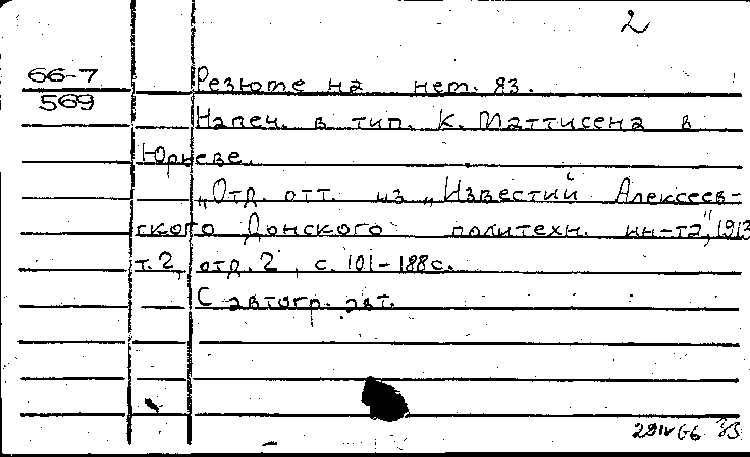 2
66-7
569
Резюме на нем. яз.
Напеч. в тип. К. Маттисена в
Юрьеве.
„Отд. отт. из „Известий Алексеев-
ского Донского политехн. ин-та", 1913
т. 2, отд. 2, с. 101-188 с.
С автогр. авт.
29IV66